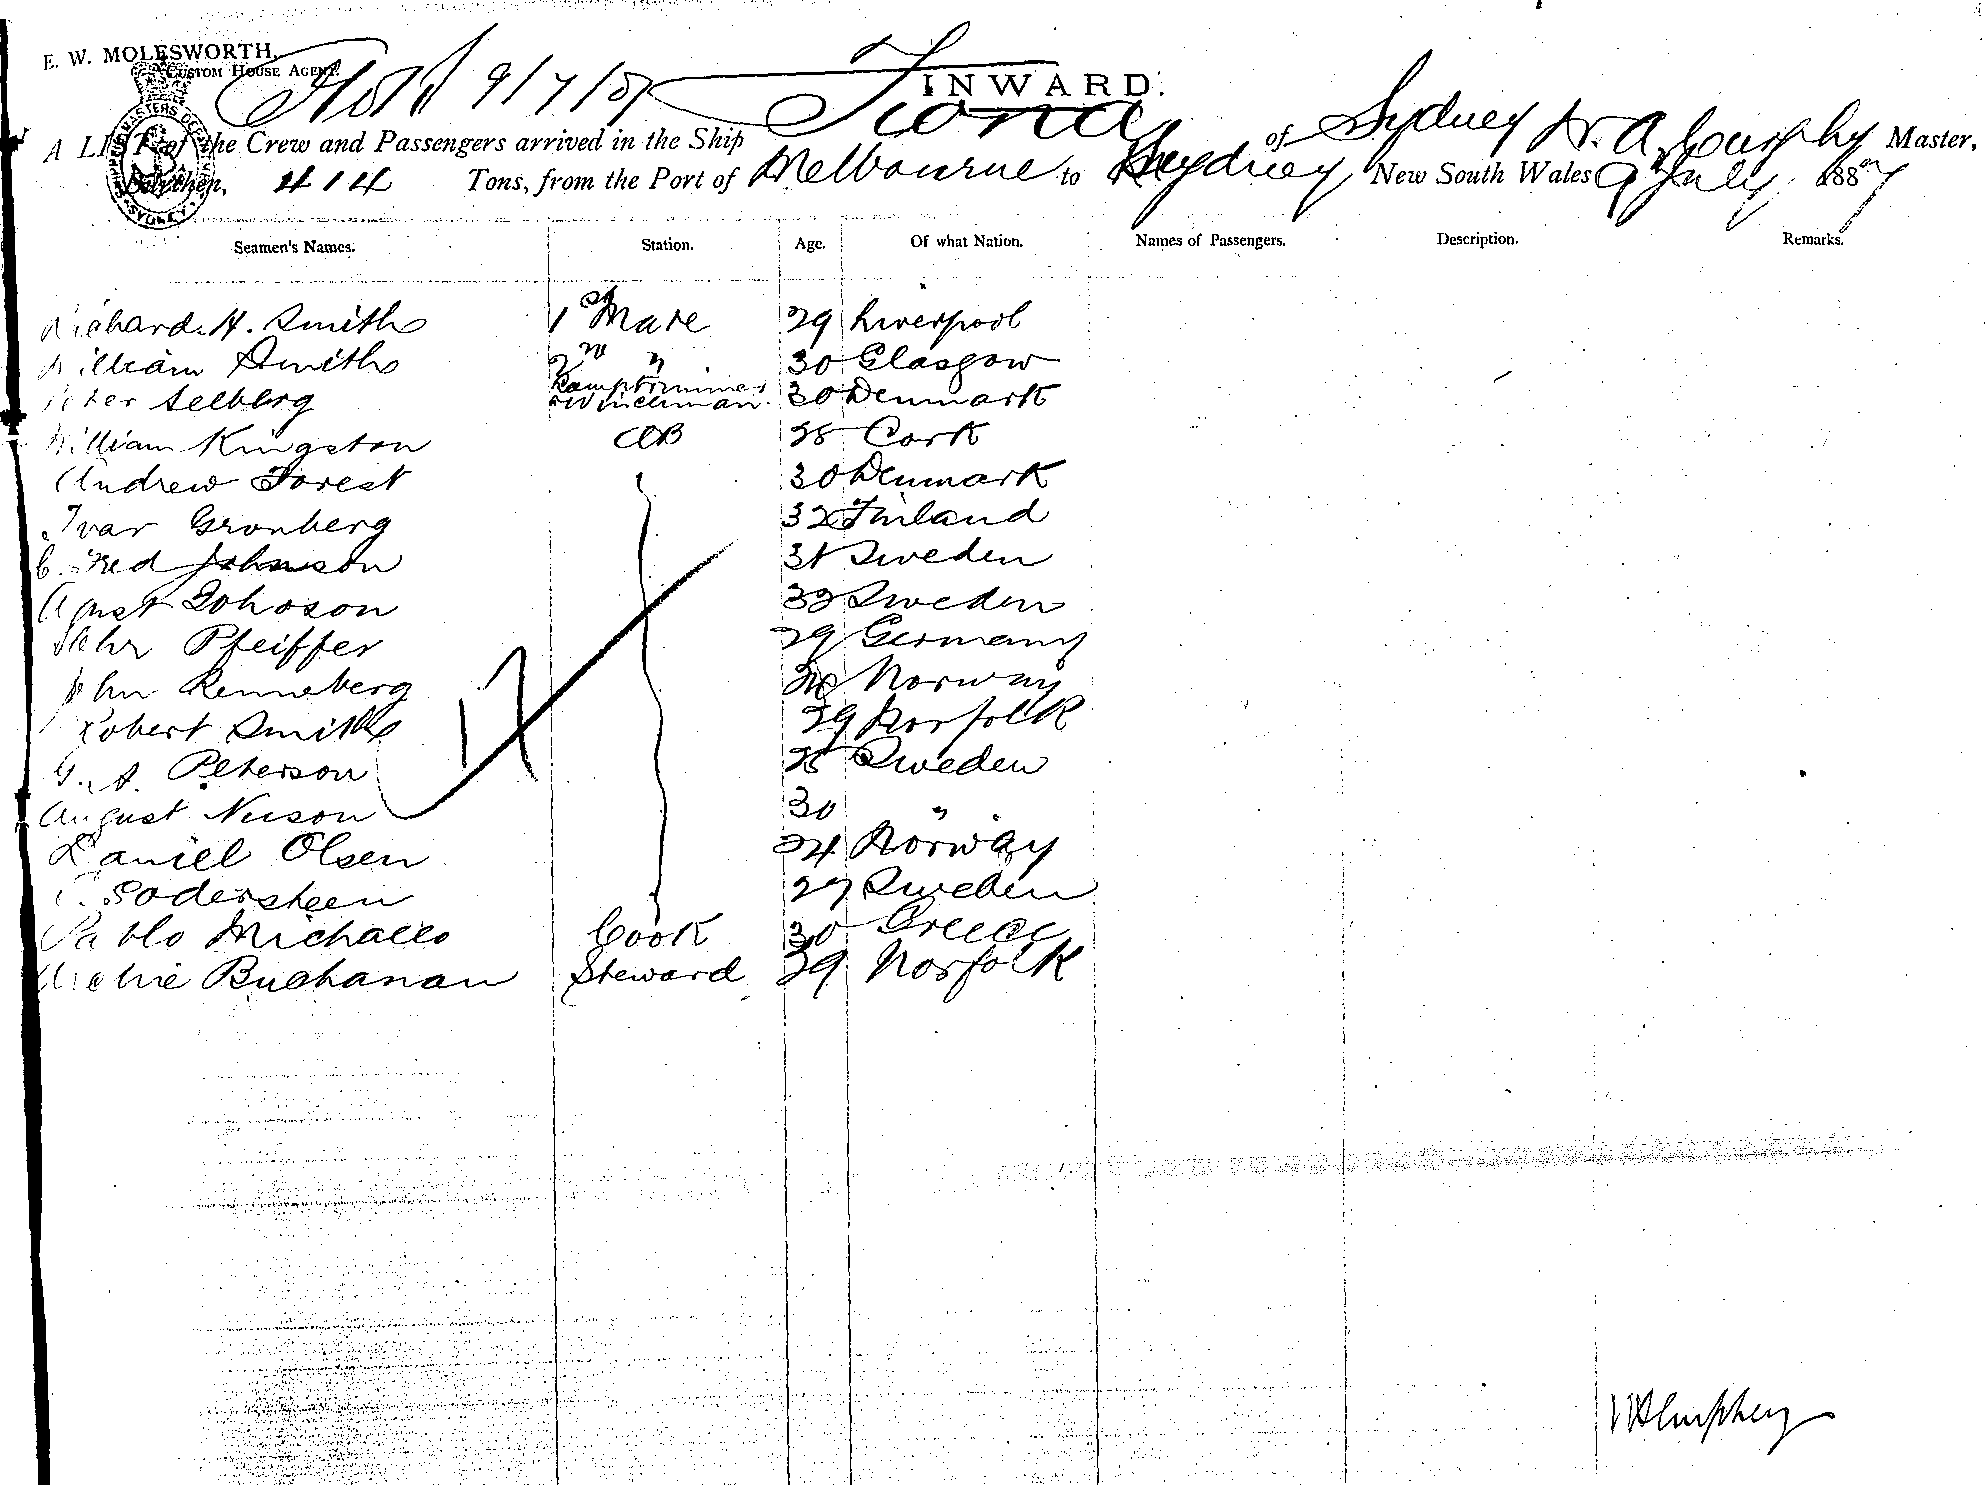 E. W. MOLESWORTH,
CUSTOM HOUSE AGENT.
9/7/87
INWARD.
A LIST of the Crew and Passengers arrived in the Ship Fiona of Sydney Master,
Burthen, 414 Tons, from the Port of Melbourne to Sydney New South Wales 9th July 1887
Seamen's Names. Station. Age. Of what Nation. Names of Passengers. Description. Remarks.
Richard H. Smith 1st Mate 29 Liverpool
William Smith 2nd " 30 Glasgow
Peter Selberg Lamptrimmer & Winchman 30 Denmark
William Kingston AB 28 Cork
Andrew Forest 30 Denmark
Ivar Gronberg 32 Finland
C. Fred Johnson 31 Sweden
Agust Johoson 33 Sweden
Pfeiffer 29 Germany
John Renneberg Norway
Robert Smith 29 Norfolk
G. A. Peterson 28 Sweden
August Nelson 30 "
Daniel Olsen 24 Norway
Sodersteen 27 Sweden
Pablo Michaelo Cook 30 Greece
Archie Buchanan Steward 29 Norfolk
17